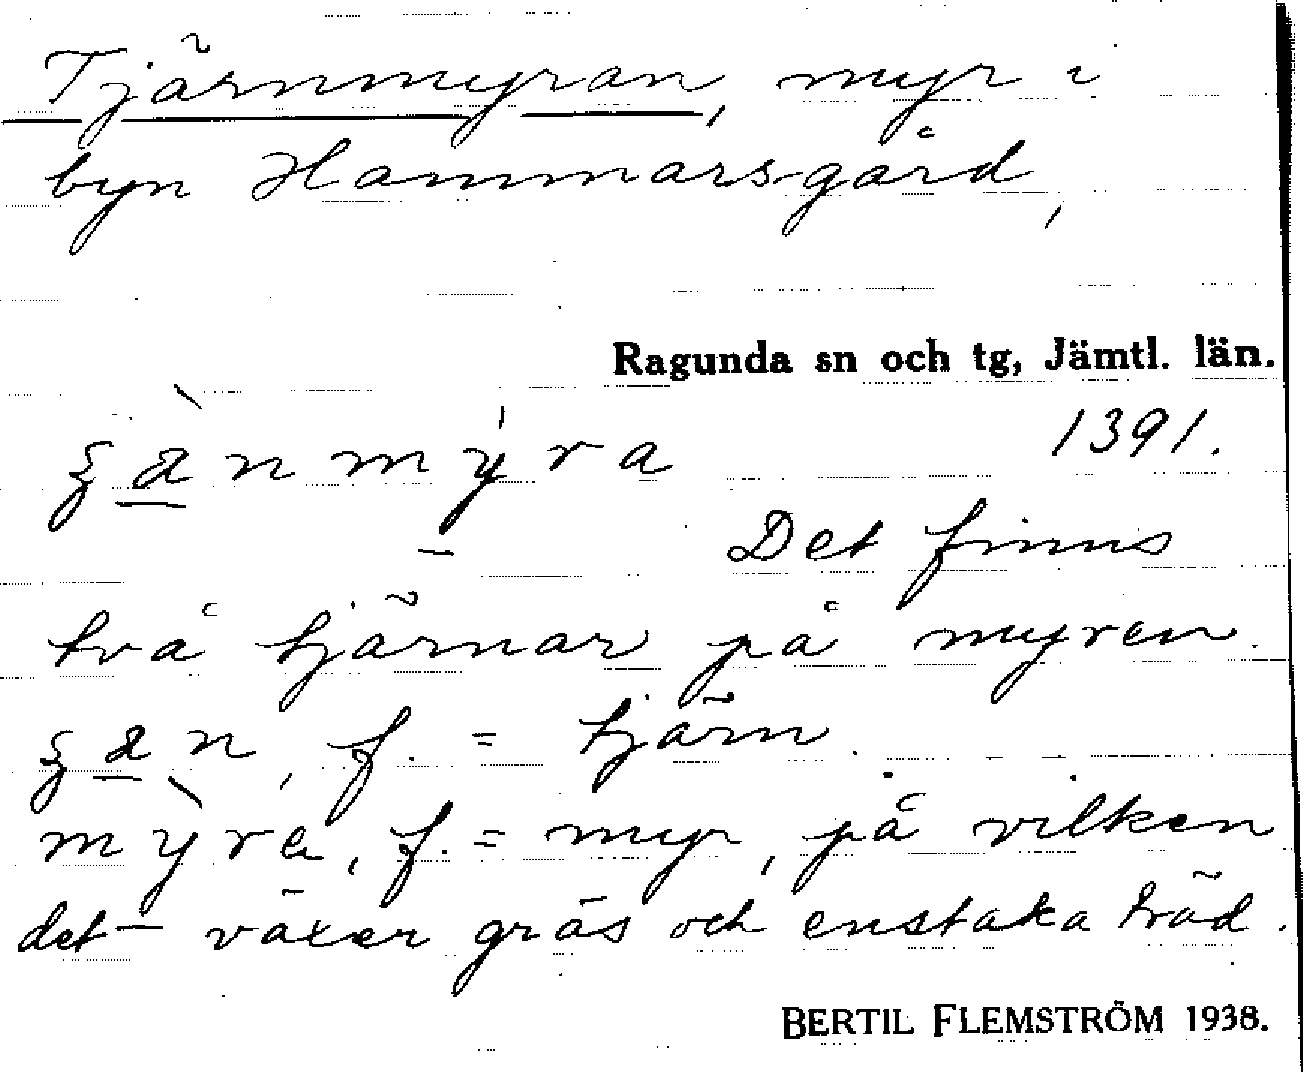 Tjärnmyran, myr i
byn Hammarsgård,
Ragunda sn och tg, Jämtl. län.
1391.
Det finns
två tjärnar på myren.
f. = tjärn.
f. = myr, på vilken
det växer gräs och enstaka träd.
BERTIL FLEMSTRÖM 1938.